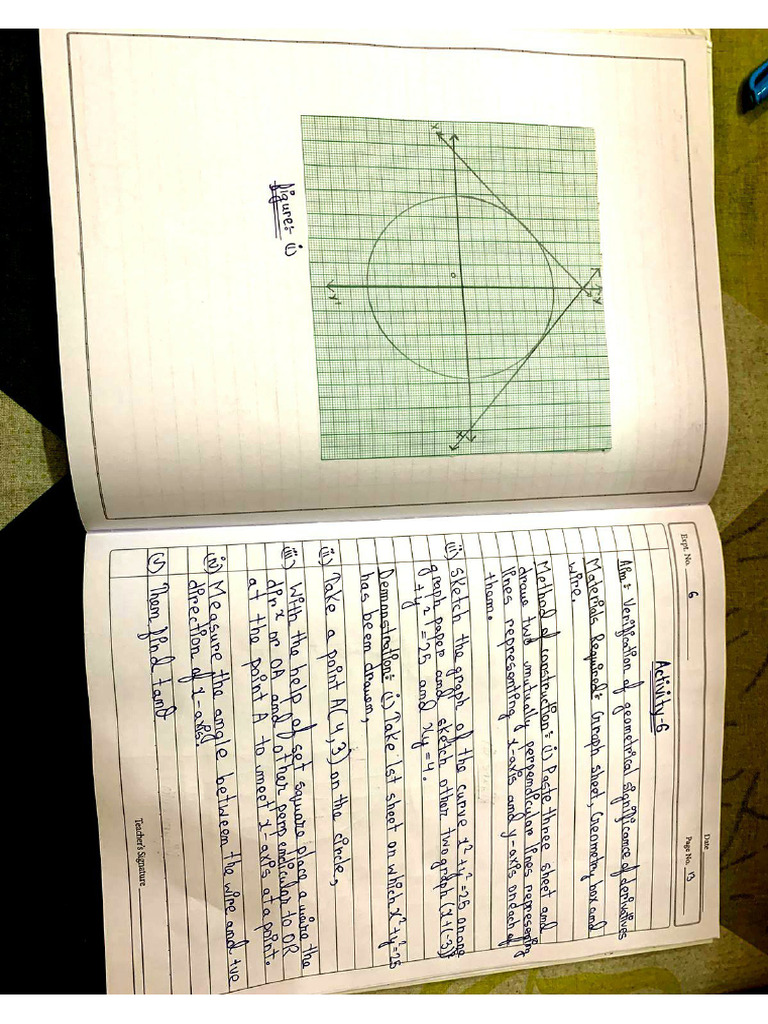 Expt. No. 6
Date
Page No. 13
Activity-6
Aim:- Verification of geometrical significance of derivatives
Materials Required:- Graph sheet, Geometry box and
wire.
Method of construction:- (i) Paste three sheet and
draw two mutually perpendicular lines representing
lines representing x-axis and y-axis on each of
them.
(ii) Sketch the graph of the curve x²+y²=25 on one
graph paper and sketch other two graph (x+(-3))²
+y²=25 and xy=4.
Demonstration:- (i) Take 1st sheet on which x²+y²=25
has been drawn,
(ii) Take a point A(4,3) on the circle,
(iii) With the help of set square place a wire the
dirⁿ or OA and other perpendicular to OR
at the point A to meet x-axis at a point.
(iv) Measure the angle between the wire and +ve
direction of x-axis.
(v) Then find tanθ
Teacher's Signature
Y
X'
O
X
Y'
figure:- (i)